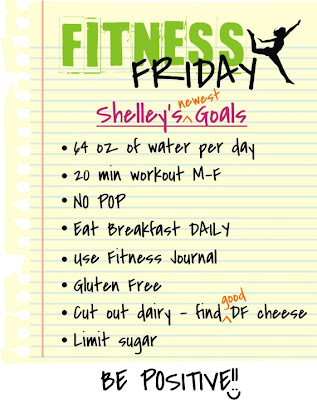 FITNESS
FRIDAY
Shelley's newest Goals
• 64 oz of water per day
• 20 min workout M-F
• NO POP
• Eat Breakfast DAILY
• Use Fitness Journal
• Gluten Free
• Cut out dairy - find good DF cheese
• Limit sugar
BE POSITIVE!!